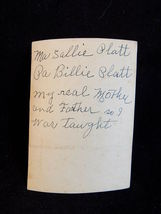 Ma Sallie Platt
Pa Billie Platt
my real Mother
and Father so I
war taught